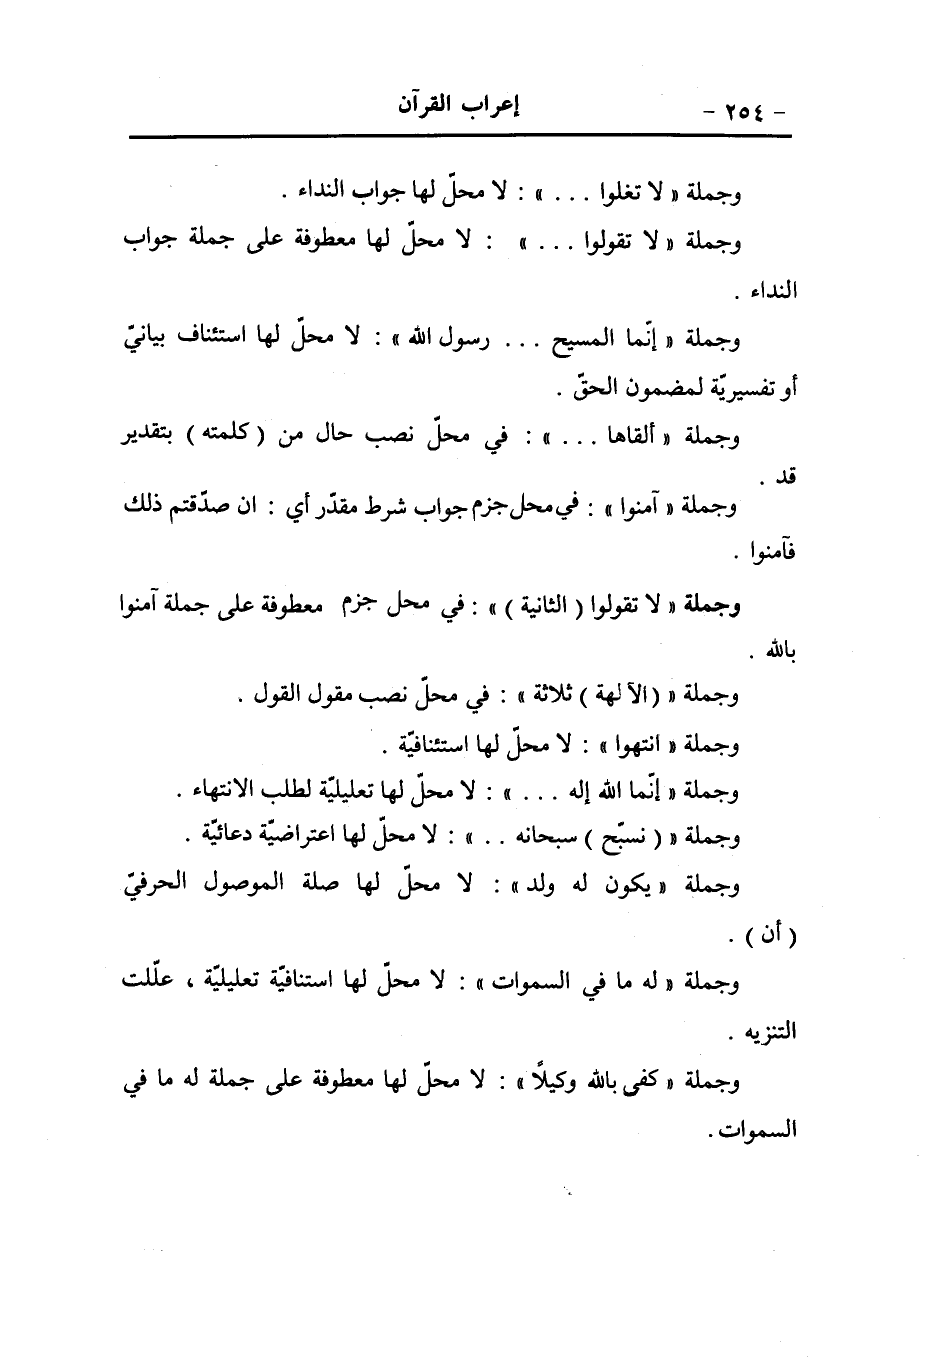 - ٢٥٤ - إعراب القرآن
وجملة « لا تغلوا . . . » : لا محلّ لها جواب النداء .
وجملة « لا تقولوا . . . » : لا محلّ لها معطوفة على جملة جواب
النداء .
وجملة « إنّما المسيح . . . رسول الله » : لا محلّ لها استئناف بيانيّ
أو تفسيريّة لمضمون الحقّ .
وجملة « ألقاها . . . » : في محلّ نصب حال من ( كلمته ) بتقدير
قد .
وجملة « آمنوا » : في محل جزم جواب شرط مقدّر أي : ان صدّقتم ذلك
فآمنوا .
وجملة « لا تقولوا ( الثانية ) » : في محل جزم معطوفة على جملة آمنوا
بالله .
وجملة « ( الآلهة ) ثلاثة » : في محلّ نصب مقول القول .
وجملة « انتهوا » : لا محلّ لها استئنافيّة .
وجملة « إنّما الله إله . . . » : لا محلّ لها تعليليّة لطلب الانتهاء .
وجملة « ( نسبّح ) سبحانه . . » : لا محلّ لها اعتراضيّة دعائيّة .
وجملة « يكون له ولد » : لا محلّ لها صلة الموصول الحرفيّ
( أن ) .
وجملة « له ما في السموات » : لا محلّ لها استنافيّة تعليليّة ، علّلت
التنزيه .
وجملة « كفى بالله وكيلاً » : لا محلّ لها معطوفة على جملة له ما في
السموات .